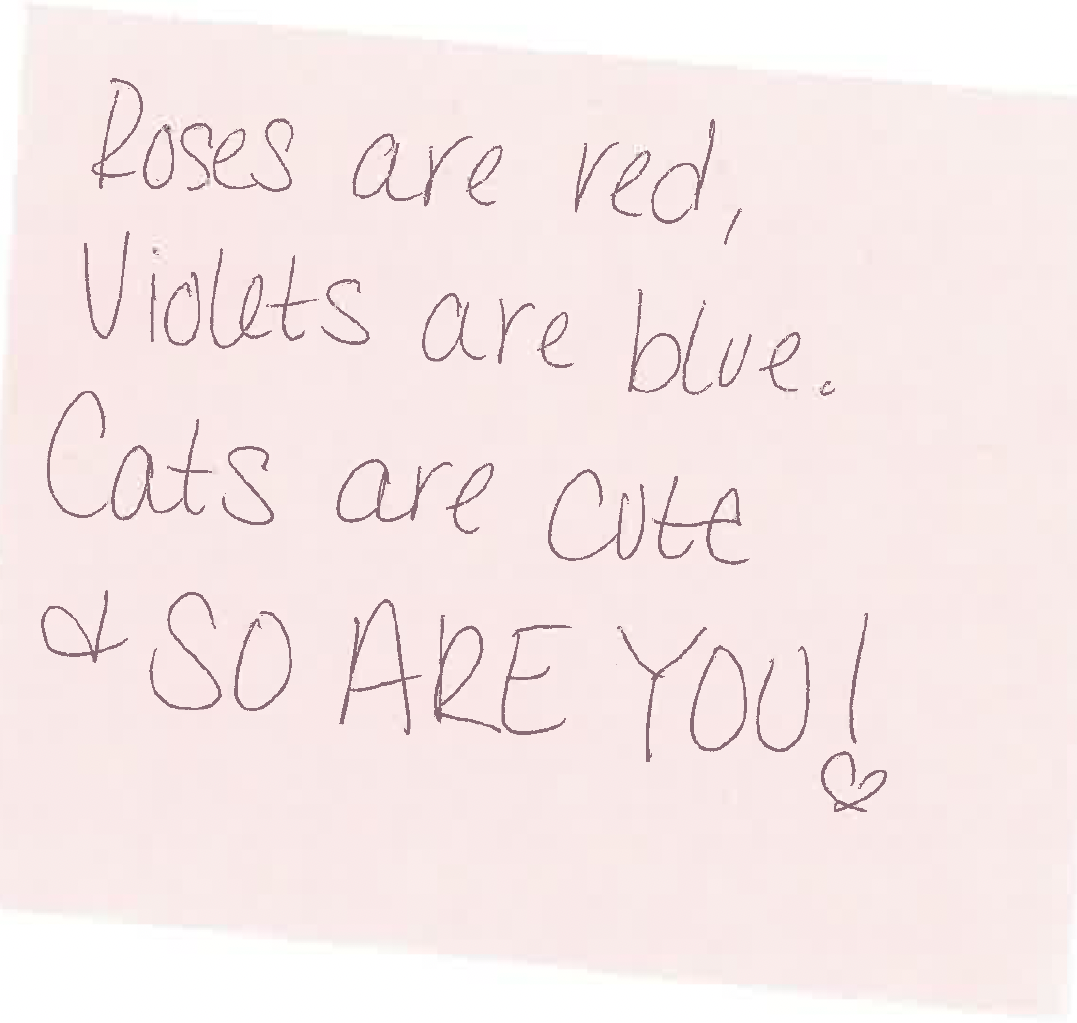 Roses are red,
Violets are blue.
Cats are cute
& SO ARE YOU!